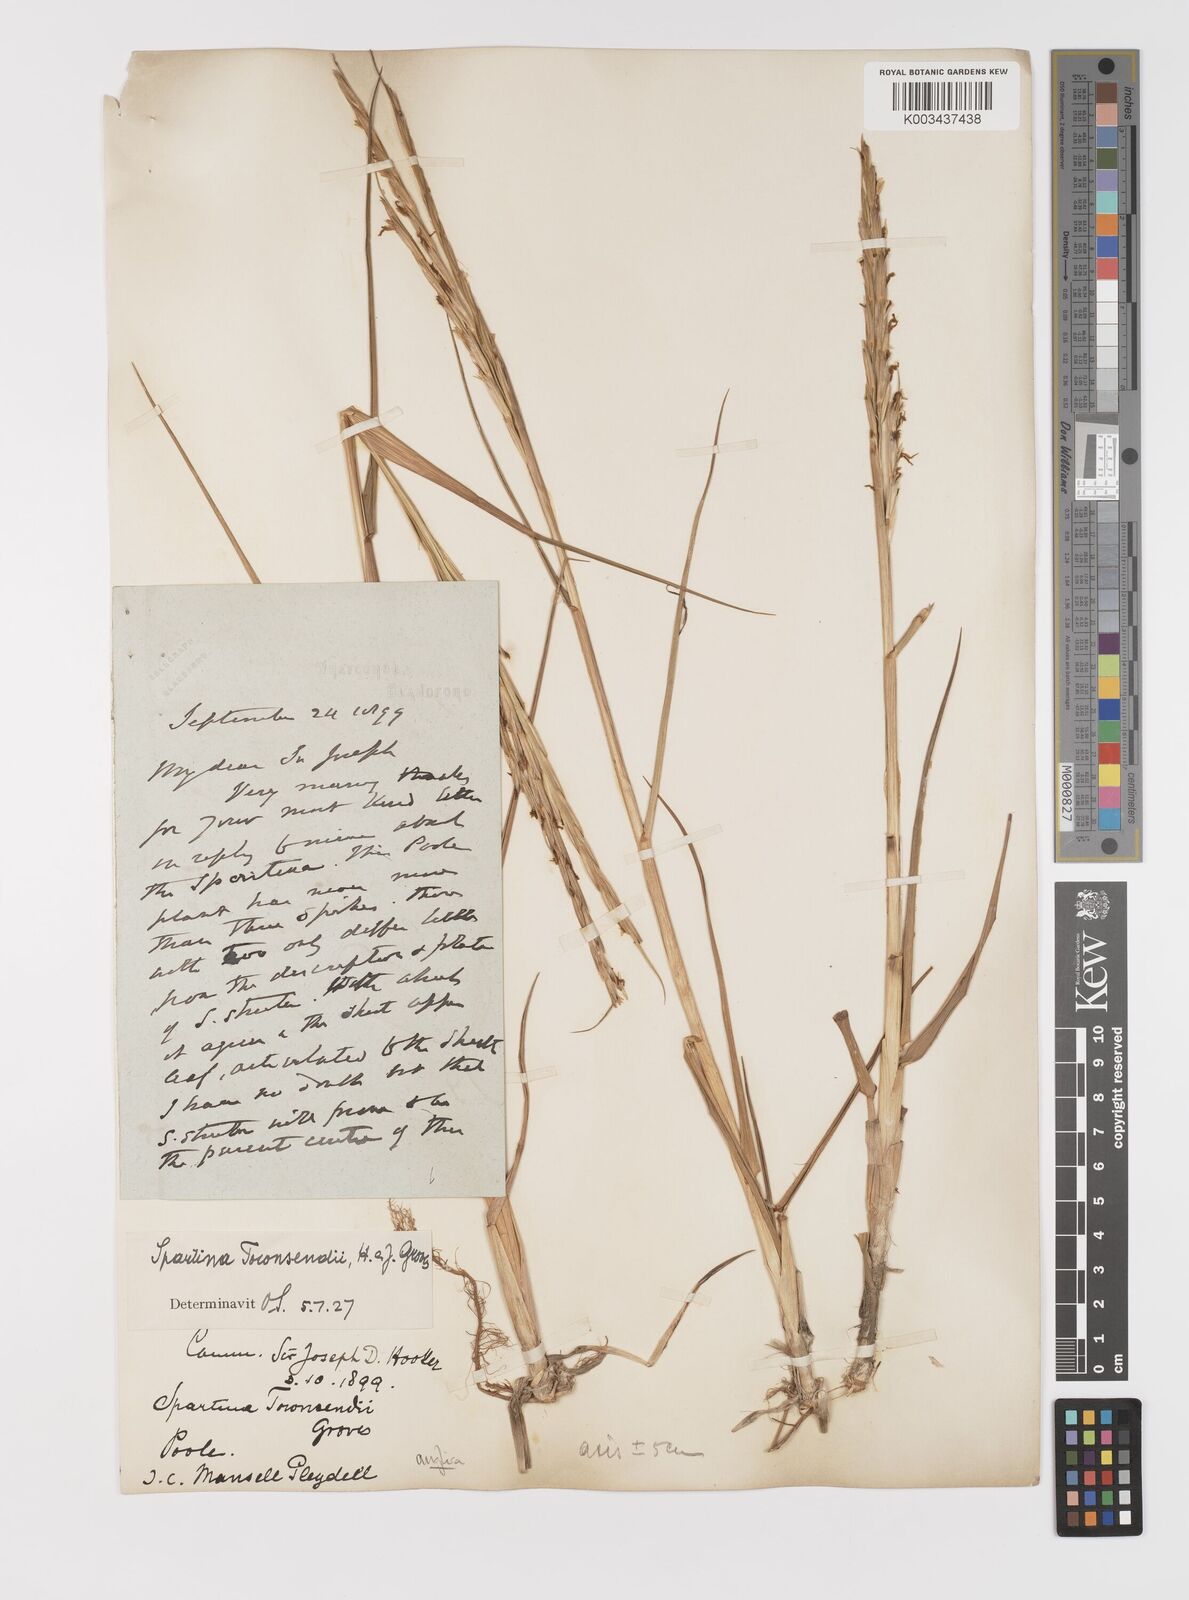 ROYAL BOTANIC GARDENS KEW
K003437438
September 24 1899
My dear Sir Joseph
Very many thanks
for your most kind letter
in reply to mine about
the Spartina. This Poole
plant has never more
than three spikes. those
with two only differ little
from the description & plate
of S. stricta.
it agrees in the short upper
leaf, articulated to the sheath
I have no doubt but that
S. stricta will prove to be
the parent of this
Spartina Townsendii, H. & J. Groves
Determinavit O.S. 5.7.27
Comm. Sir Joseph D. Hooker
2.10.1899.
Spartina Townsendii
Groves
Poole.
J. C. Mansell Pleydell
anglica
axis ± 5cm
inches
Density
Don Williams
M000827
copyright reserved
Royal Botanic Gardens
Kew
0 1 2 3 4 5 6 7 8 9 10
cm